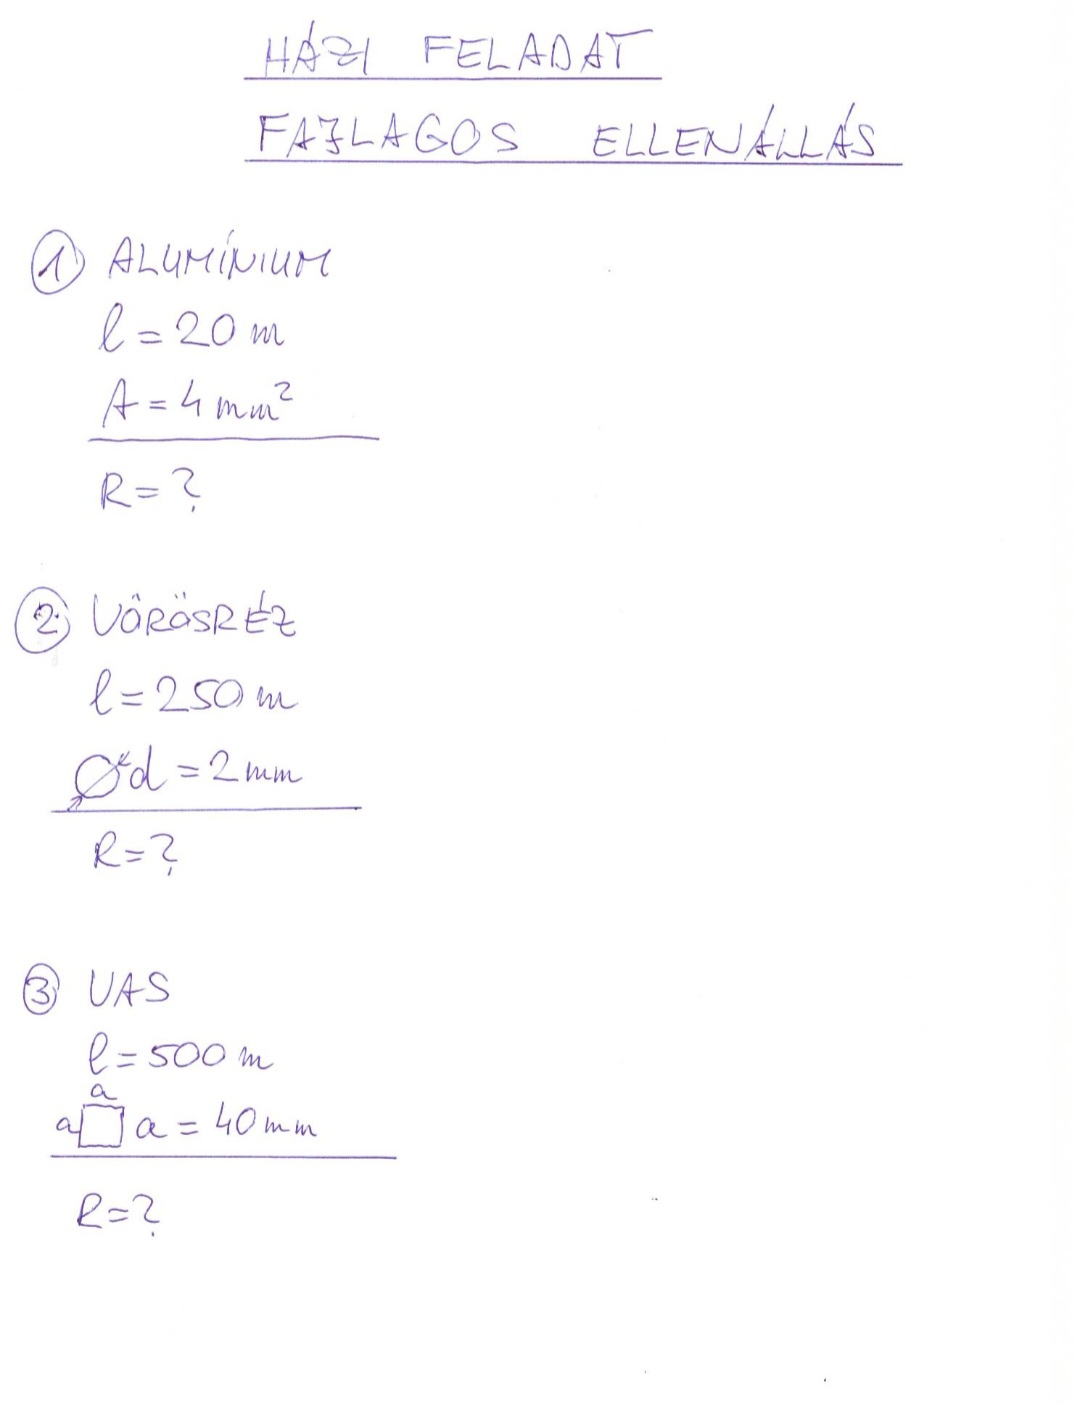 HÁZI FELADAT
FAJLAGOS ELLENÁLLÁS
① ALUMÍNIUM
l = 20 m
A = 4 mm²
R = ?
② VÖRÖSRÉZ
l = 250 m
⌀ d = 2 mm
R = ?
③ VAS
l = 500 m
a
a □ a = 40 mm
R = ?